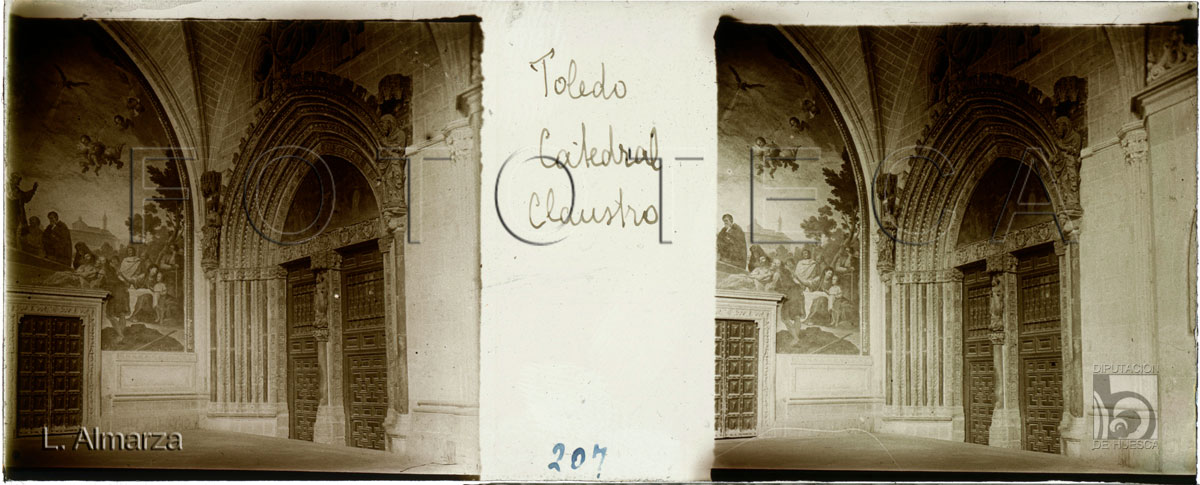 Toledo
Catedral
Claustro
207
FOTOTECA
L. Almarza
DIPUTACION
DE HUESCA